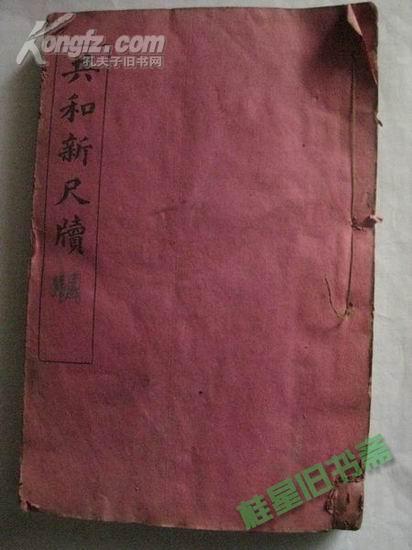 Kongfz.com
孔夫子旧书网
共和新尺牍
桂星旧书斋